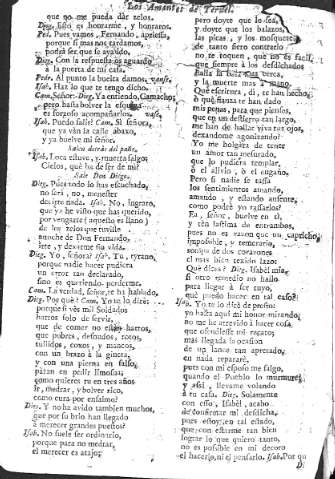 Los Amantes de Teruel.
que no me pueda dar zelos.
Dieg. Esso es honrarme, y honraros.
Ped. Pues vamos, Fernando, apriessa,
porque si mas nos tardamos,
podrà ser que se
Dieg. Con la respuesta os aguardo
à la puerta de mi casa.
Pedr. Al punto la buelta damos, vanse.
Isab. Haz lo que te tengo dicho.
Cam. Señor. Dieg. Ya entiendo, Camacho;
pero hasta bolver la esquina
es forzoso acompañarlos. vase.
Isab. Puedo salir? Cam. Si señora,
que ya vàn la calle abaxo,
y ya buelve mi señor.
Salen detràs del paño.
Isab. Loca estuve, y muerta salgo;
Cielos, què ha de ser de mi?
Sale Don Diego.
Dieg. Pues todo lo has escuchado,
no serà, no, menester
decirte nada. Isab. No, ingrato,
que ya he visto que has querido,
por vengarte (remedio es llano)
de los zelos que tuviste
anoche de Don Fernando,
irte, y dexarme sin vida.
Dieg. Yo, señora? Isab. Tu, tyrano,
porque nadie hacer pudiera
un error tan declarado,
sino es queriendo perderme.
Cam. La verdad, señor, te ha hablado.
Dieg. Por què? Cam. Yo te lo dirè:
porque si vès mil Soldados
hartos solo de servir,
que de comer no estàn hartos,
que pobres, desnudos, rotos,
tullidos, coxos, y mancos,
con un brazo à la gineta,
y con una pierna en falso,
paran en pedir limosna;
como quieres tu en tres años
ir, medrar, y bolver rico,
como cura por ensalmo?
Dieg. Y no ha avido tambien muchos,
que por su brio han llegado
à merecer grandes puestos?
Isab. No suele ser ordinario,
porque para no medrar,
el merecer es atajo;
pero doyte que lo sea,
y doyte que los balazos,
las picas, y los mosquetes
de tanto fiero contrario
no te toquen, que no es facil,
que siempre à los desdichados
Balla la bala mas cerca,
y la muerte mas à mano.
Què escritura, di, te han hecho,
ò què fianza te han dado
mis penas, para que pienses,
que en un destierro tan largo,
me han de hallar viva tus ojos,
dexandome agonizando?
Yo me holgàra de tener
un amor tan mesurado,
que lo pudiera templar,
ò el alivio, ò el engaño.
Pero si nadie te tassa
los sentimientos amando,
amando, y estando ausente,
como podrè yo tassarlos?
Ea, señor, buelve en ti,
y ten lastima de entrambos,
pues no es razon que un capricho,
impossible, y temerario,
rompa de dos corazones
el mas bien texido lazo:
Què dices? Dieg. Isabèl mia,
si otro remedio no hallo
para llegar à ser tuyo,
què puedo hacer en tal caso?
Isab. Yo te lo dirè de presto:
yo hasta aqui mi honor mirando,
no me he atrevido à hacer cosa,
que ofendiesse mi recato;
mas llegada la ocasion
de un lance tan apretado,
de nada repararè,
pues con mi esposo me salgo,
quando el Pueblo lo murmure,
y assi, llevame volando
à tu casa. Dieg. Solamente
con esso, Isabèl, acabo
de confirmar mi desdicha,
pues estoy en tal estado,
que con estarme tan bien
lograr lo que quiero tanto,
no es possible en mi decoro
el hacerlo, ni el pensarlo. Isab. Por què
D